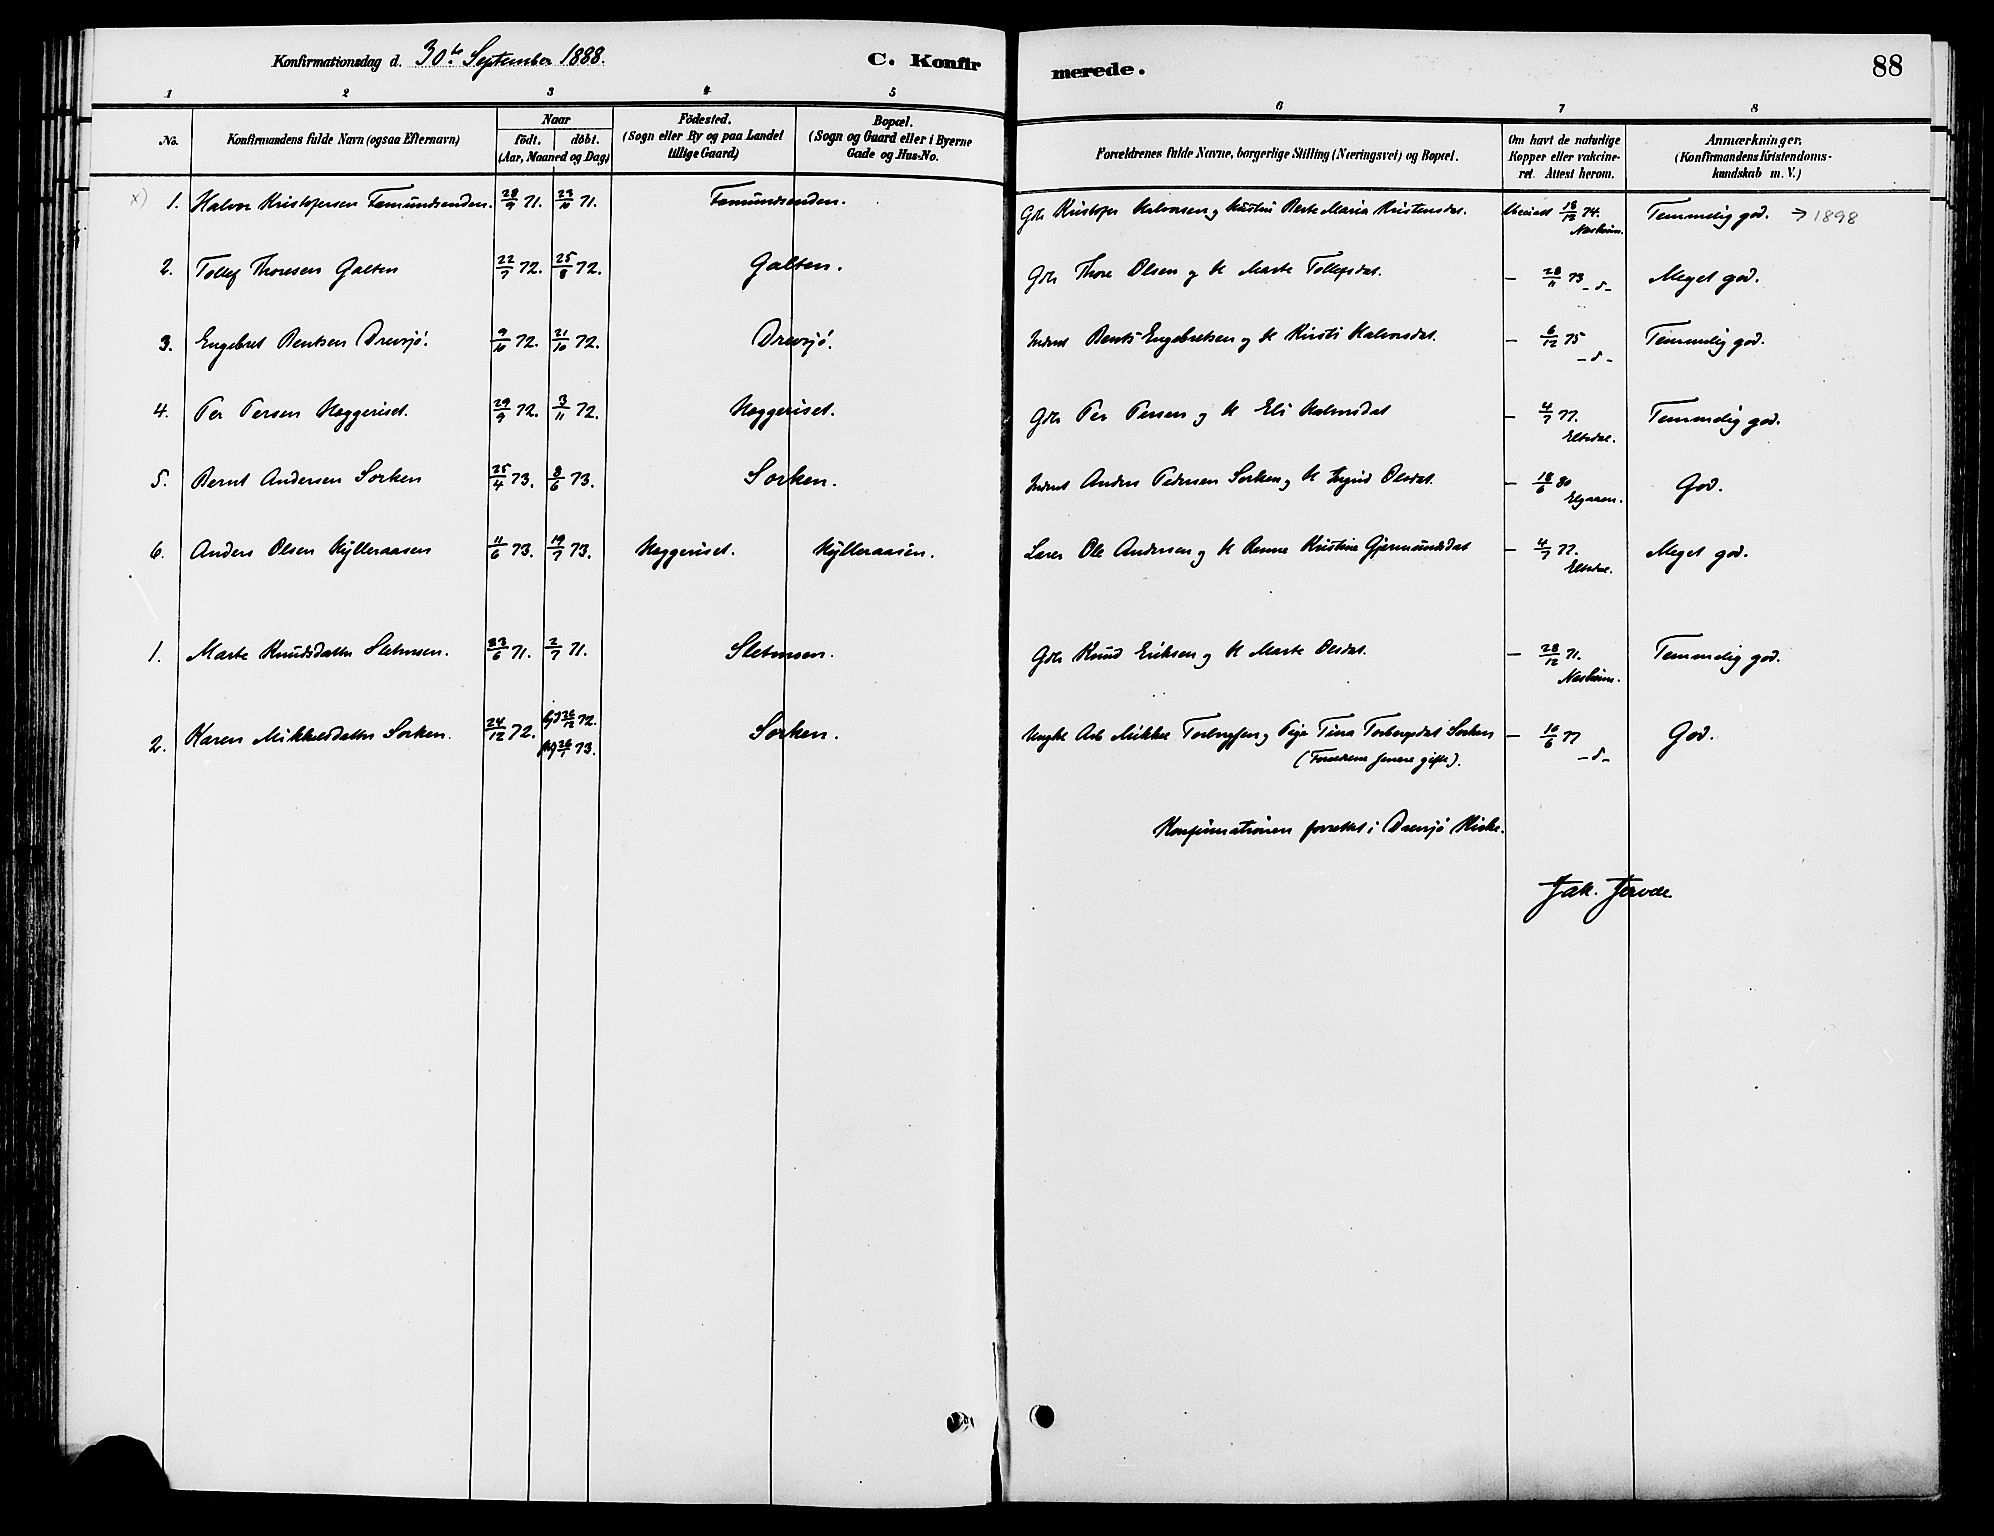 Konfirmationsdag d. 30te September 1888.
C. Konfirmerede.
88
1 2 3 4 5 6 7 8
No.
Konfirmandens fulde Navn (ogsaa Efternavn)
Naar
födt. döbt.
(Aar, Maaned og Dag)
Födested.
(Sogn eller By og paa Landet
tillige Gaard)
Bopæl.
(Sogn og Gaard eller i Byerne
Gade og Hus-No.
Forældrenes fulde Navne, borgerlige Stilling (Næringsvei) og Bopæl.
Om havt de naturlige
Kopper eller vakcine-
ret. Attest herom.
Anmærkninger.
(Konfirmandens Kristendoms-
kundskab m. V.)
x) 1. Halvor Kristofersen Femundsenden. 28/9 71. 23/10 71. Femundsenden. Gdr Kristofer Halvorsen og Berte Maria Kristensdat. 18/12 74. Temmelig god. → 1898
2. Tollef Thoresen Galten 22/7 72. 25/8 72. Galten. Gdr Thore Olsen og H Marte Tollefsdat. – 28/11 73 -d- Meget god.
3. Engebret Bentsen Drevsjö. 9/10 72. 21/10 72. Drevsjö. Inderst Bent Engebretsen og H Kirsti Halvorsdat. – 6/12 75 -d- Temmelig god.
4. Per Persen Heggeriset. 29/9 72. 3/11 72. Heggeriset. Gdr Per Persen og H Eli Halvorsdat – 4/7 77. Eltdal. Temmelig god.
5. Bernt Andersen Sorken 25/4 73. 8/6 73. Sorken. Inderst Anders Pedersen Sorken og H Ingrid Olsdat. – 18/6 80 Elgaaen. God.
6. Anders Olsen Hylleraasen 11/6 73. 19/7 73. Heggeriset. Hylleraasen. Lærer Ole Andersen og H Kristine Gjermundsdat – 4/7 77. Eltdal. Meget god.
1. Marte Knudsdatter Sletmoen. 23/6 71. 2/7 71. Sletmoen. Gdr Knud Eriksen og H Marte Olsdat. – 28/12 71. Temmelig god.
2. Karen Mikkelsdatter Sorken. 24/12 72. 26/12 72. Sorken. Ungkl Arb Mikkel og Pige Tina Torbergsdat Sorken – 10/6 77 -d- God.
26/1 73. (Forældrene senere gifte).
Konfirmationen forrettet i Drevsjö Kirke.